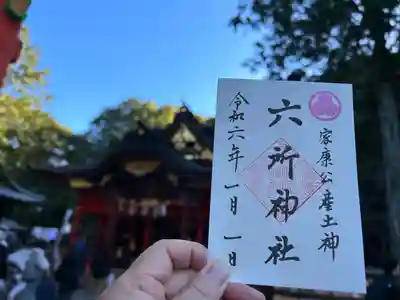 家康公産土神
六所神社
令和六年一月一日